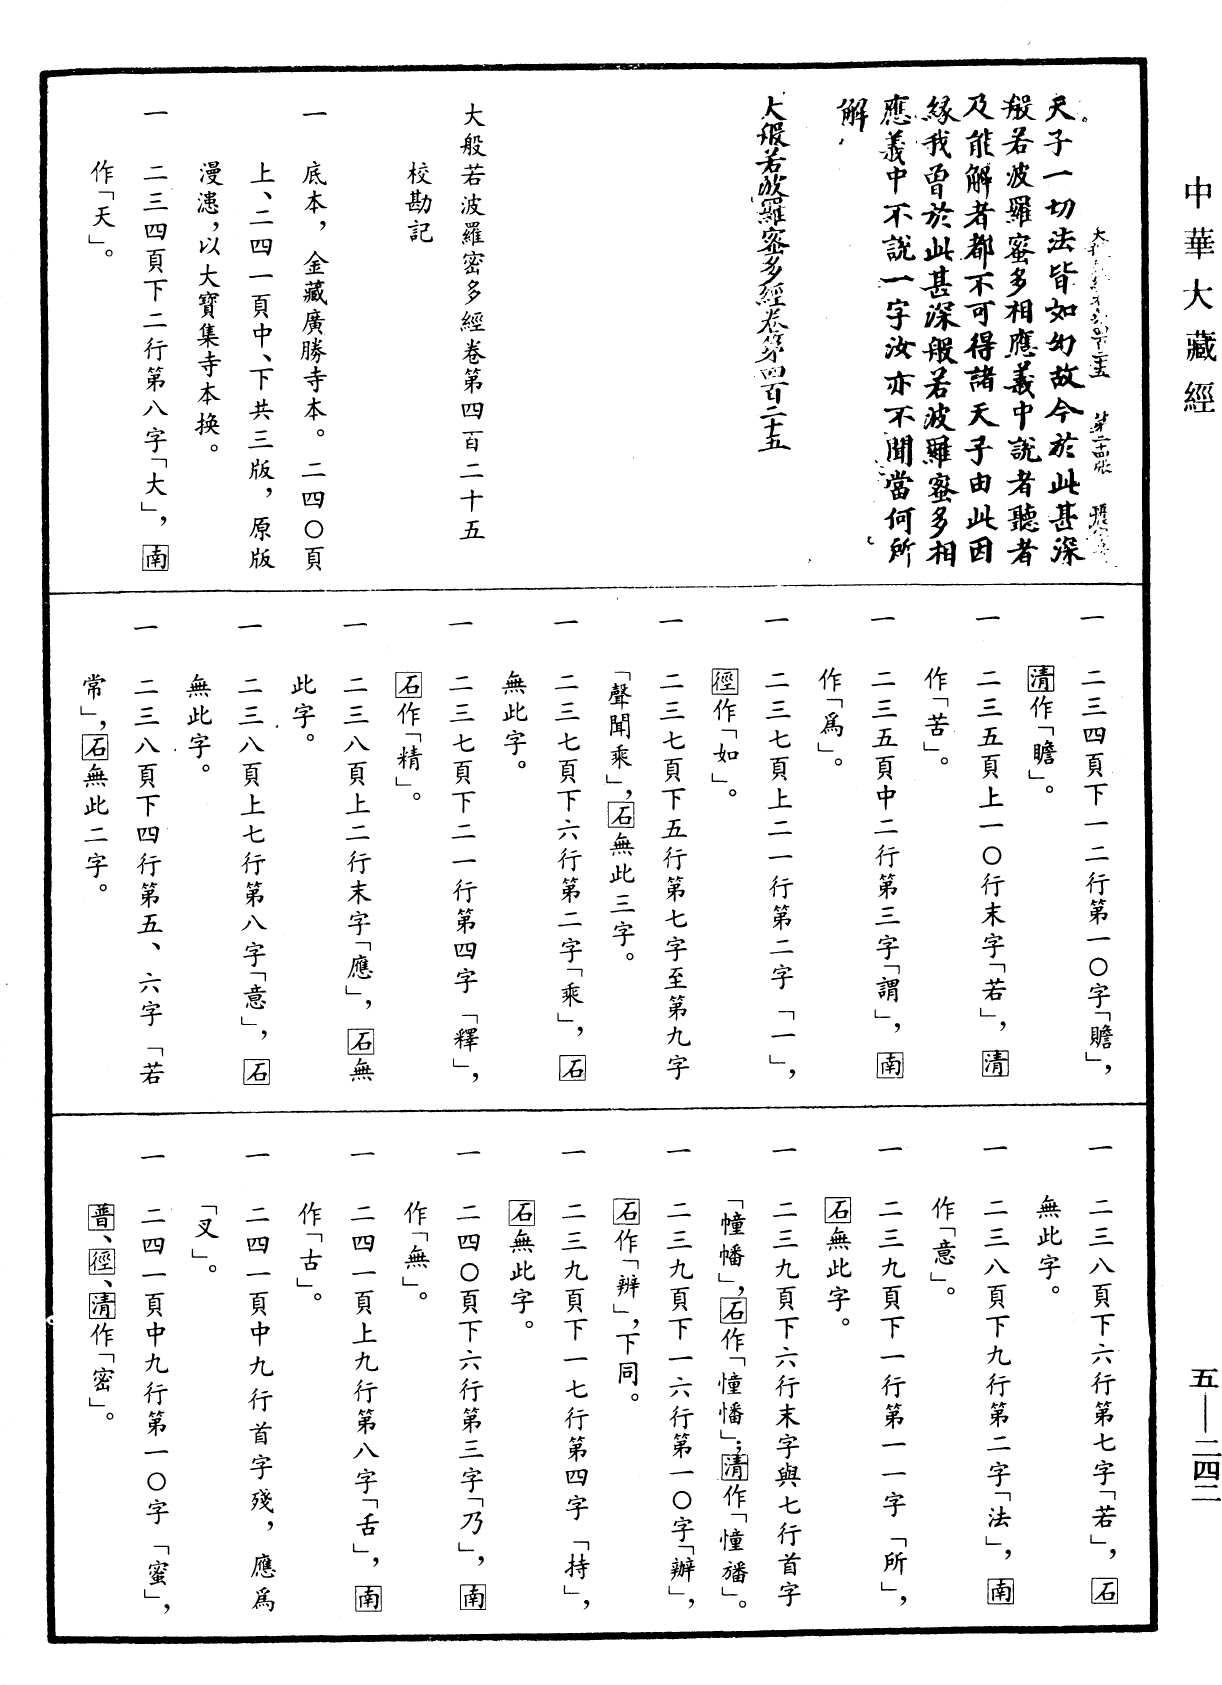 中華大藏經
天子一切法皆如幻故今於此甚深
般若波羅蜜多相應義中說者聽者
及能解者都不可得諸天子由此因
緣我曾於此甚深般若波羅蜜多相
應義中不說一字汝亦不聞當何所
解
大般若波羅蜜多經卷第四百二十五
大般若波羅密多經卷第四百二十五
校勘記
一 底本，金藏廣勝寺本。二四〇頁
上、二四一頁中、下共三版，原版
漫漶，以大寶集寺本換。
一 二三四頁下二行第八字「大」，南
作「天」。
一 二三四頁下一二行第一〇字「贍」，
清作「瞻」。
一 二三五頁上一〇行末字「若」，清
作「苦」。
一 二三五頁中二行第三字「謂」，南
作「爲」。
一 二三七頁上二一行第二字「一」，
徑作「如」。
一 二三七頁下五行第七字至第九字
「聲聞乘」，石無此三字。
一 二三七頁下六行第二字「乘」，石
無此字。
一 二三七頁下二一行第四字「釋」，
石作「精」。
一 二三八頁上二行末字「應」，石無
此字。
一 二三八頁上七行第八字「意」，石
無此字。
一 二三八頁下四行第五、六字「若
常」，石無此二字。
一 二三八頁下六行第七字「若」，石
無此字。
一 二三八頁下九行第二字「法」，南
作「意」。
一 二三九頁下一行第一一字「所」，
石無此字。
一 二三九頁下六行末字與七行首字
「幢幡」，石作「憧憣」；清作「憧旛」。
一 二三九頁下一六行第一〇字「辦」，
石作「辨」，下同。
一 二三九頁下一七行第四字「持」，
石無此字。
一 二四〇頁下六行第三字「乃」，南
作「無」。
一 二四一頁上九行第八字「舌」，南
作「古」。
一 二四一頁中九行首字殘，應爲
「叉」。
一 二四一頁中九行第一〇字「蜜」，
普、徑、清作「密」。
五——二四二